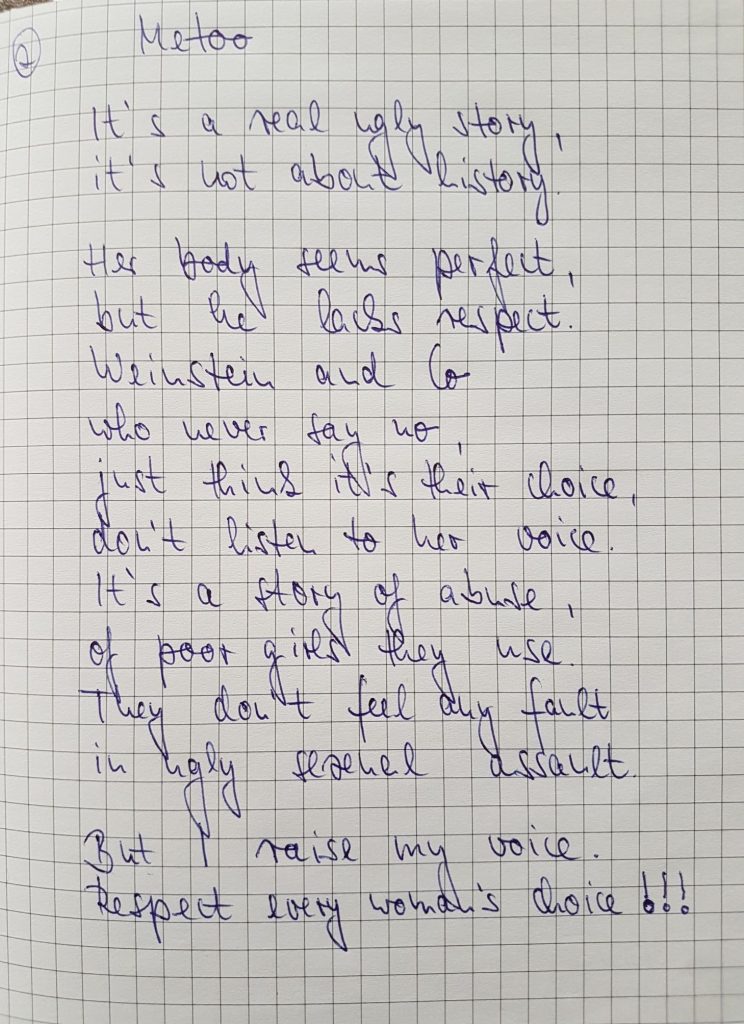 2
Metoo
It's a real ugly story,
it's not about history.
Her body seems perfect,
but he lacks respect.
Weinstein and Co
who never say no,
just think it's their choice,
don't listen to her voice.
It's a story of abuse,
of poor girls they use.
They don't feel any fault
in ugly sexual assault.
But I raise my voice.
Respect every woman's choice !!!